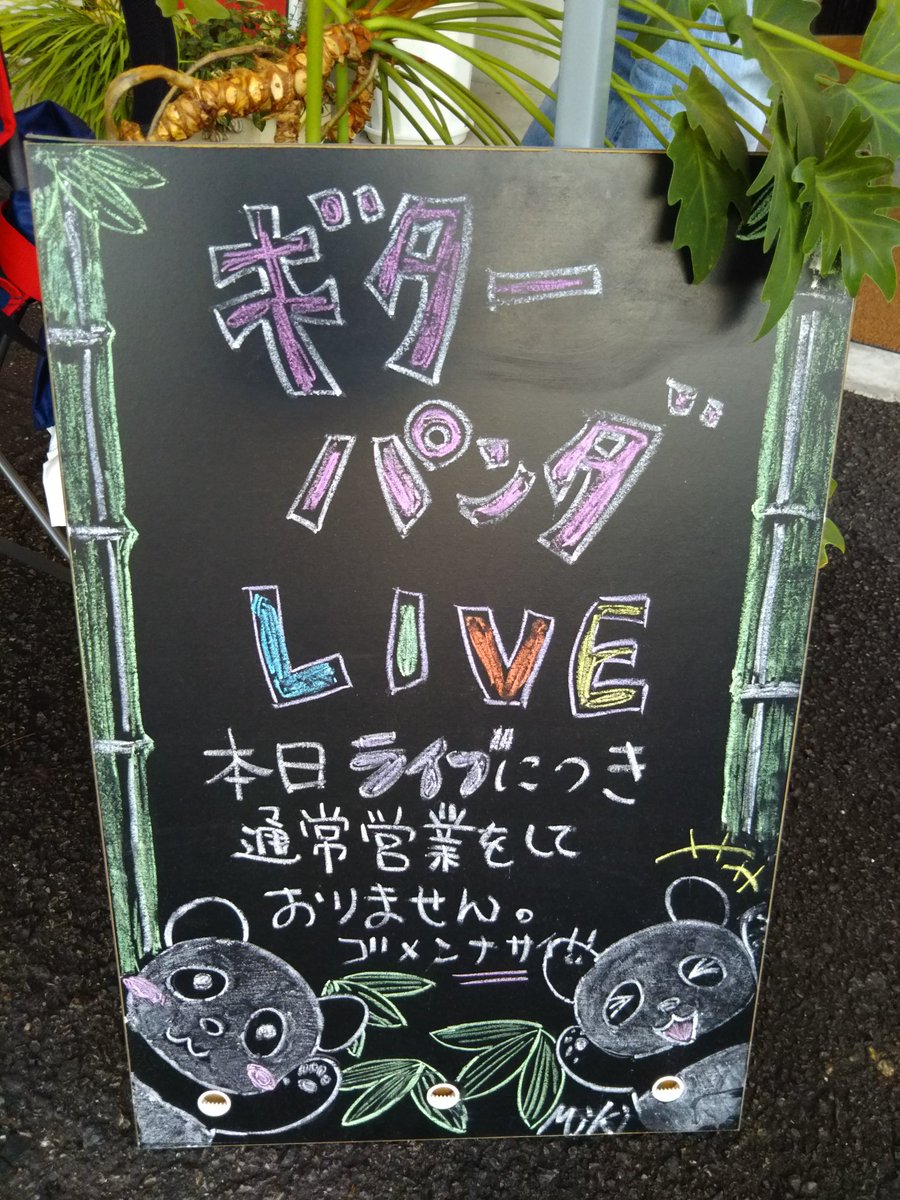 ギター
パンダ
LIVE
本日ライブにつき
通常営業をして
おりません。
ゴメンナサイ
Miki